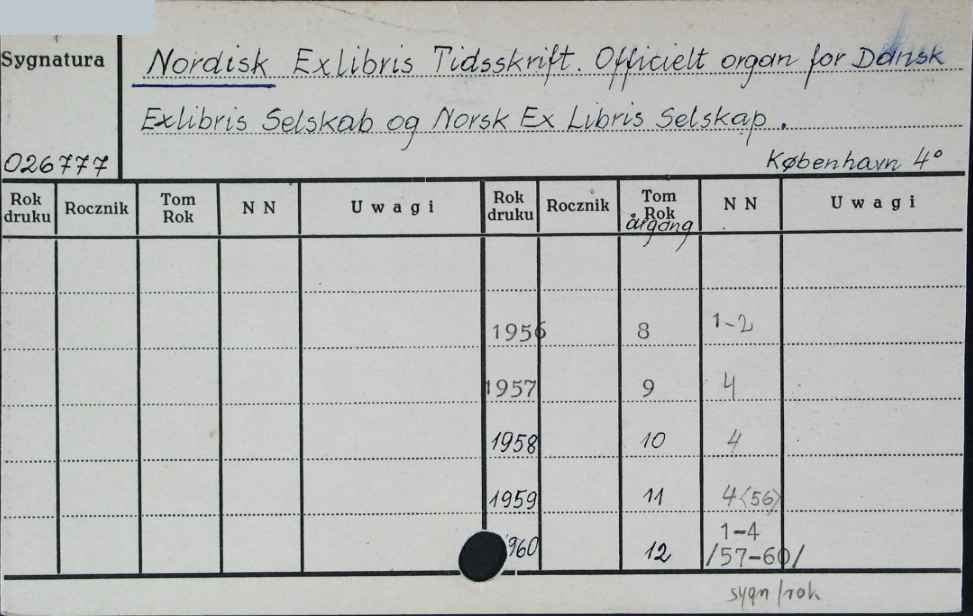 Sygnatura
Nordisk Exlibris Tidsskrift. Officielt organ for Dansk
Exlibris Selskab og Norsk Ex Libris Selskap.
026777
København 4°
Rok druku Rocznik Tom Rok NN Uwagi Rok druku Rocznik Tom Rok årgang NN Uwagi
1956 8 1-2
1957 9 4
1958 10 4
1959 11 4<56>
1960 12 1-4 /57-60/
sygn/rok